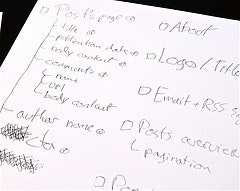 Posts page
title
publication date
body content
comments
name
url
body content
author name
About
Logo / Title
Email + RSS
Posts overview
pagination